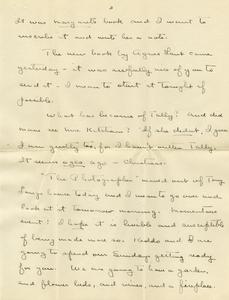 2
It was Margaret's book and I want to
inscribe it and write her a note.
The new book by Agnes Laut came
yesterday - it was awfully nice of you to
send it - I mean to start at tonight if
possible.
What has become of Tally? And did
name me Mrs Kitchens? If she didn't, I guess
I am guilty too, for I haven't written Tally.
It seems ages ago - Christmas.
"The Photographer" moved out of Tony
house today and I mean to go over and
look at it tomorrow morning. Momentous
event! I hope it is livable and susceptible
of being made more so. Kiddo and I are
going to spend our Sundays getting ready
for you. We are going to have a garden,
and flower beds, and vines, and a fireplace.